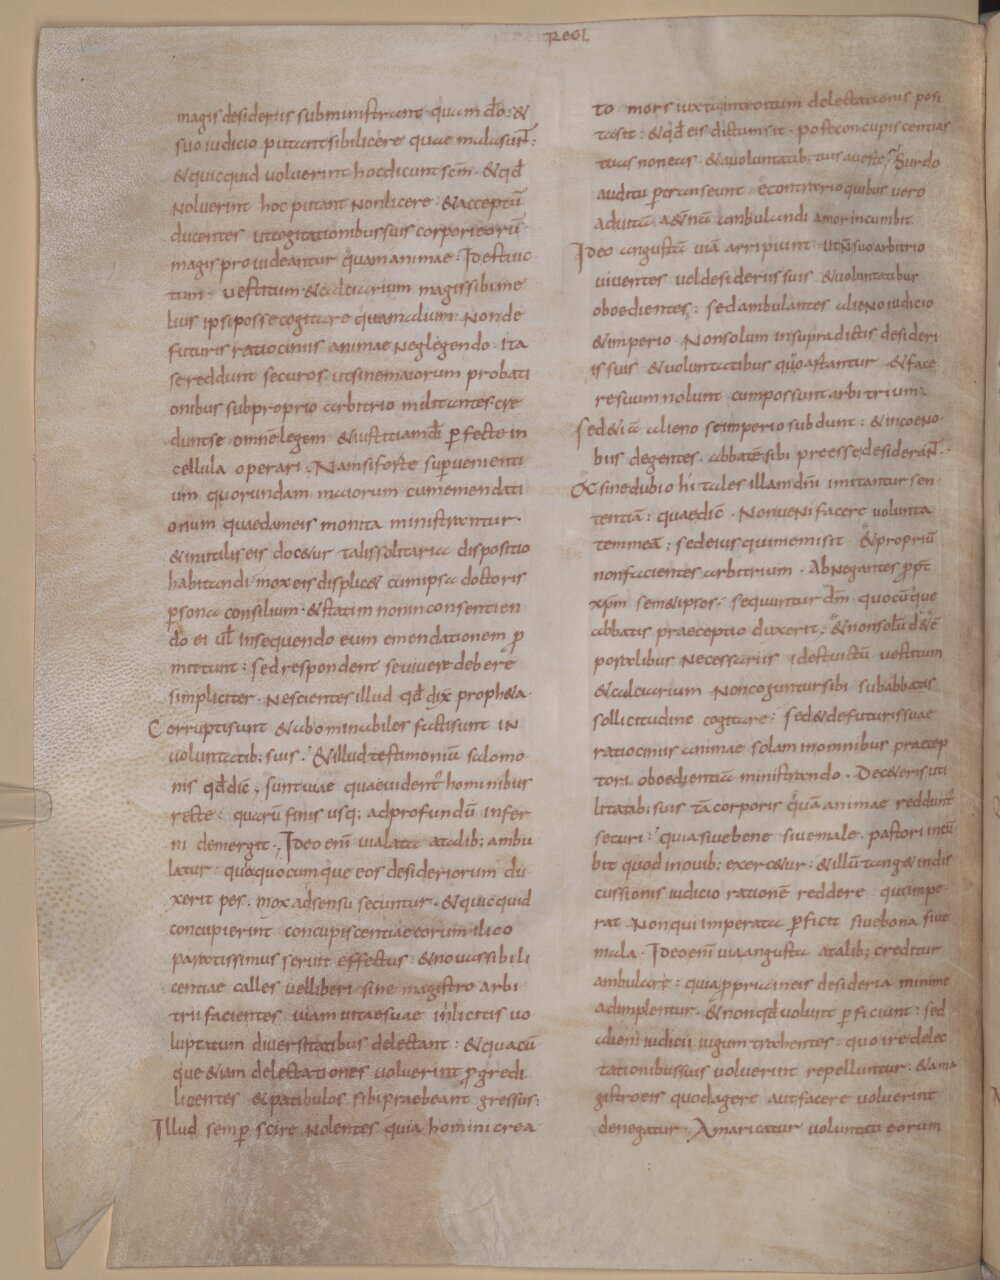 REGL
magis desideriis subministrant quam dō: &
suo iudicio putant sibi licere quae mala sunt:
& quicquid uoluerint hoc dicunt scm̄ · & qd̄
Noluerint hoc putant Non licere · & acceptū
ducentes ut cogitationibus suis corpori eorū
magis prouideantur quam animae: Id est uic
tum · uestitum & calciarium magis sibi me
lius ipsi posse cogitare quam alium · Non de
futuris ratiociniis animae Neglegendo · ita
se reddunt securos ut sine maiorum probati
onibus sub proprio arbitrio militantes cre
dunt se omnē legem & iustitiam dī perfecte in
cellula operari; Nam si forte superuenienti
um quorundam maiorum cum emendati
onum quaedam eis monita ministrantur ·
& inutilis eis doc&ur talis solitaria dispositio
habitandi · mox eis displic& cum ipsa doctoris
persona consilium · & statim non in consentien
do ei ul̄ in sequendo eum emendationem pro
mittunt: sed respondent se uiuere debere
simpliciter · Nescientes illud qd̄ dix̄ proph&a ·
Corrupti sunt & abominabiles facti sunt in
uoluntatib; suis · & illud testimoniū salomo
nis qd̄ dic̄; sunt uiae quae uident̄ hominibus
recte: quarū finis usq; ad profundū infer
ni demergit; Ideo enī uia lata a talib; ambu
latur: quia quocumque eos desideriorum du
xerit pes · mox ad sensu secuntur · & quicquid
concupierint concupiscentiae eorum ilico
paratissimus seruit effectus: & noua sibi li
centiae calles uel liberi sine magistro arbi
trii facientes uiam uitae suae inlicitis uo
luptatum diuersitatibus delectant: & quacū
que &iam delectationes uoluerint progredi
licentes & patibulos sibi praebeant gressus:
Illud semper scire Nolentes quia homini crea
to mors iuxta introitum delectationis posi
ta sit: & qd̄ eis dictum sit · post concupiscentias
tuas non eas & a uoluntatib; tuis auerte; Surdo
auditu pertranseunt · e contrario quibus uero
ad uitā a&nā ambulandi amor incumbit
Ideo angustā uiā arripiunt ut n̄ suo arbitrio
uiuentes uel desideriis suis & uoluntatibus
oboedientes: sed ambulantes alieno iudicio
& imperio · Non solum in supradictis desideri
is suis & uoluntatibus quo artantur & face
re suum nolunt cum possunt arbitrium:
Sed &iā alieno se imperio subdunt: & in coeno
biis degentes · abbatē sibi preesse desiderant ·
Sine dubio hi tales illam dn̄i imitantur sen
tentiā: quae dic̄ · Non ueni facere uolunta
tem meā: sed eius qui me misit & propriū
non facientes arbitrium · Abnegantes propt̄
xp̄m sem&ipsos · sequuntur dm̄ quocūque
abbatis praeceptio duxerit; & non solū de
portalibus Necessariis id est uictū uestitum
& calciarium Non coguntur sibi sub abbatis
sollicitudine cogitare: sed & de futuris suae
ratiociniis animae solam in omnibus praecep
tori oboedientiā ministrando · De c&eris uti
litatib; suis tā corporis quā animae reddunt̄
securi: quia siue bene siue male · pastori incū
bit quod in ouib; exerc&ur: & illū tang& in dis
cussionis iudicio rationē reddere qui impe
rat · Non qui imperata perficit siue bona siue
mala · Ideo enī uia angusta a talib; creditur
ambulare: quia propria in eis desideria minime
adimplentur · & non qd̄ uolunt perficiunt: sed
alieni iudicii iugum trahentes · quo ire delec
tationibus suis uoluerint repelluntur: & a ma
gistro eis quod agere aut facere uoluerint
denegatur · Amaricatur uoluntas eorum